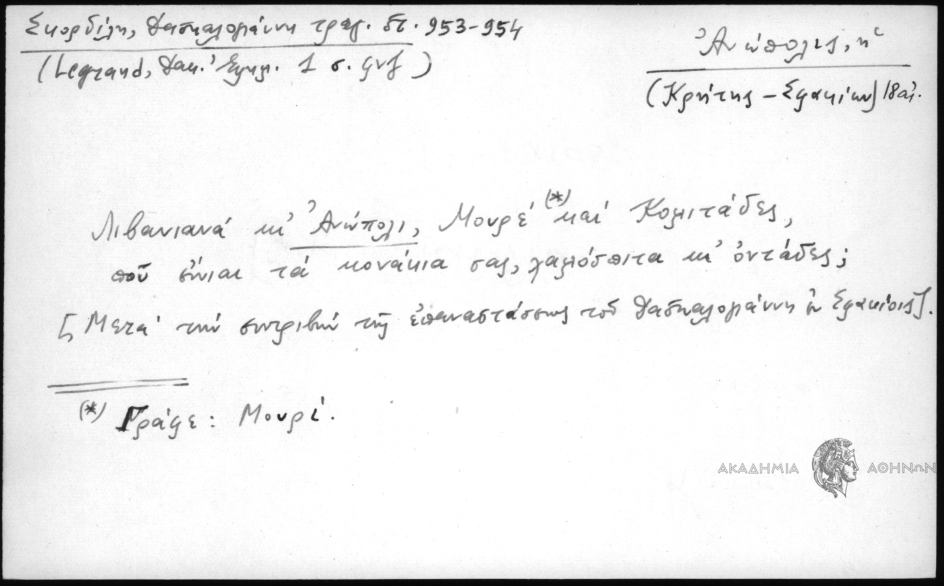 Σκορδίλη, Δασκαλογιάννη τραγ. στ. 953-954
(Legrand, Δασ. 1 σ. ϟνζ)
Ἀνώπολις, ἡ
(Κρήτης - Σφακίων) 18 αἰ.
Λιβανιανά κι' Ἀνώπολι, Μουρέ (*) καί Κολιτάδες,
ποῦ εἶναι τά κονάκια σας, χαλιόσπιτα κι' ὀντάδες;
[Μετά τήν συντριβήν τῆς ἐπαναστάσεως τοῦ Δασκαλογιάννη ἐν Σφακίοις].
(*) Γράφε: Μουρί.
ΑΚΑΔΗΜΙΑ ΑΘΗΝΩΝ